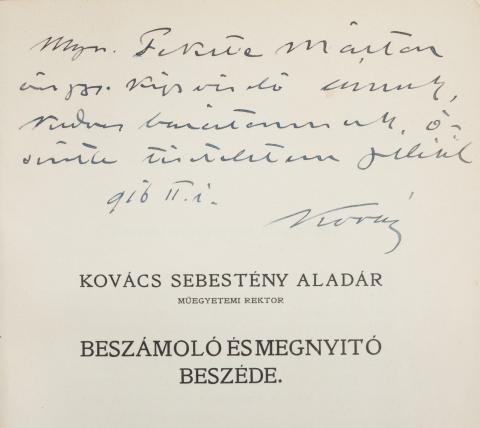 Mgn. Fekete Márton
képviselő úrnak,
kedves barátomnak, ő-
szinte tiszteletem jeléül
916 II. 1.
Kovács
KOVÁCS SEBESTÉNY ALADÁR
MŰEGYETEMI REKTOR
BESZÁMOLÓ ÉS MEGNYITÓ
BESZÉDE.